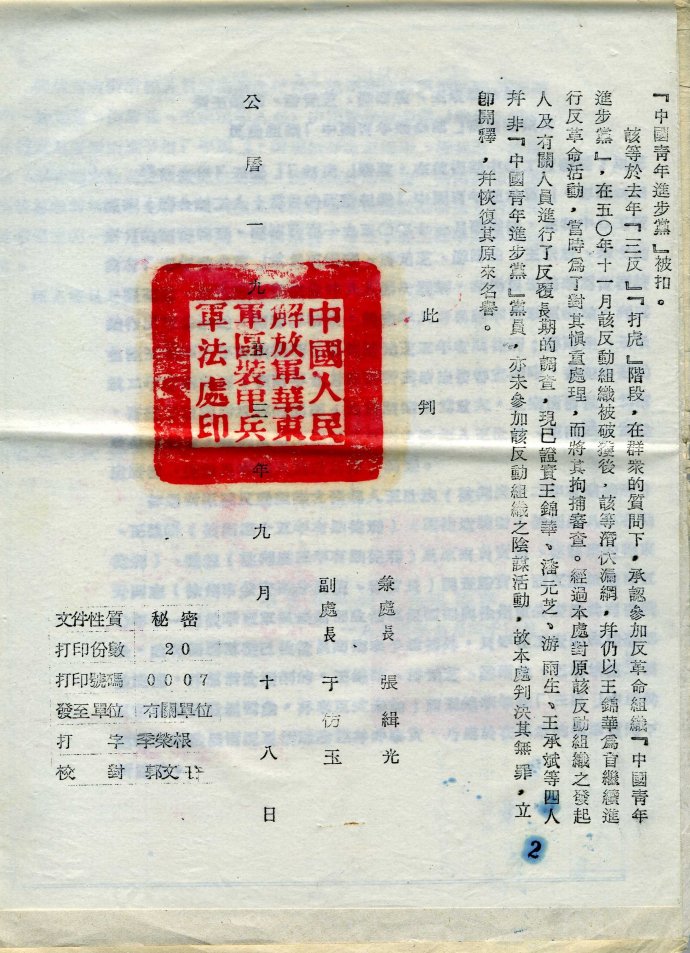 『中國青年進步黨』被扣。
該等於去年『三反』『打虎』階段，在群衆的質問下，承認參加反革命組織『中國青年
進步黨』，在五〇年十一月該反動組織被破獲後，該等潛伏漏網，幷仍以王錦華爲首繼續進
行反革命活動，當時爲了對其愼重處理，而將其拘捕審查。經過本處對原該反動組織之發起
人及有關人員進行了反覆長期的調查，現已證實王錦華、潘元芝、游雨生、王承斌等四人
幷非『中國青年進步黨』黨員，亦未參加該反動組織之陰謀活動，故本處判決其無罪，立
卽開釋，幷恢復其原來名譽。
此判
兼處長 張緝光
副處長 于仿玉
公曆一九五三年九月十八日
中國人民
解放軍華東
軍區裝甲兵
軍法處印
文件性質 秘密
打印份數 20
打印號碼 0007
發至單位 有關單位
打字 季榮根
校對 郭文
2